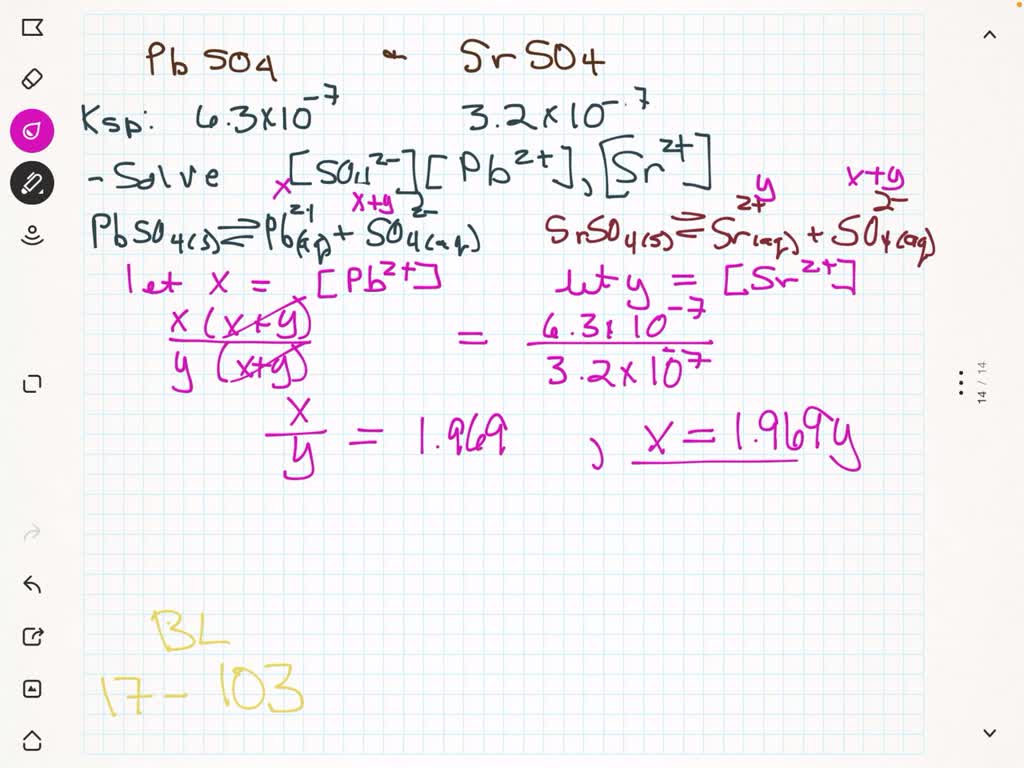 PbSO4 - SrSO4
Ksp: 6.3×10⁻⁷ 3.2×10⁻⁷
- Solve [SO4²⁻][Pb²⁺],[Sr²⁺]
x x+y y x+y
PbSO4(s) ⇌ Pb²⁺(aq) + SO4²⁻(aq) SrSO4(s) ⇌ Sr²⁺(aq) + SO4²⁻(aq)
let x = [Pb²⁺] let y = [Sr²⁺]
x(x+y) / y(x+y) = 6.3×10⁻⁷ / 3.2×10⁻⁷
x/y = 1.969 , x = 1.969y
BL
17-103
14 / 14